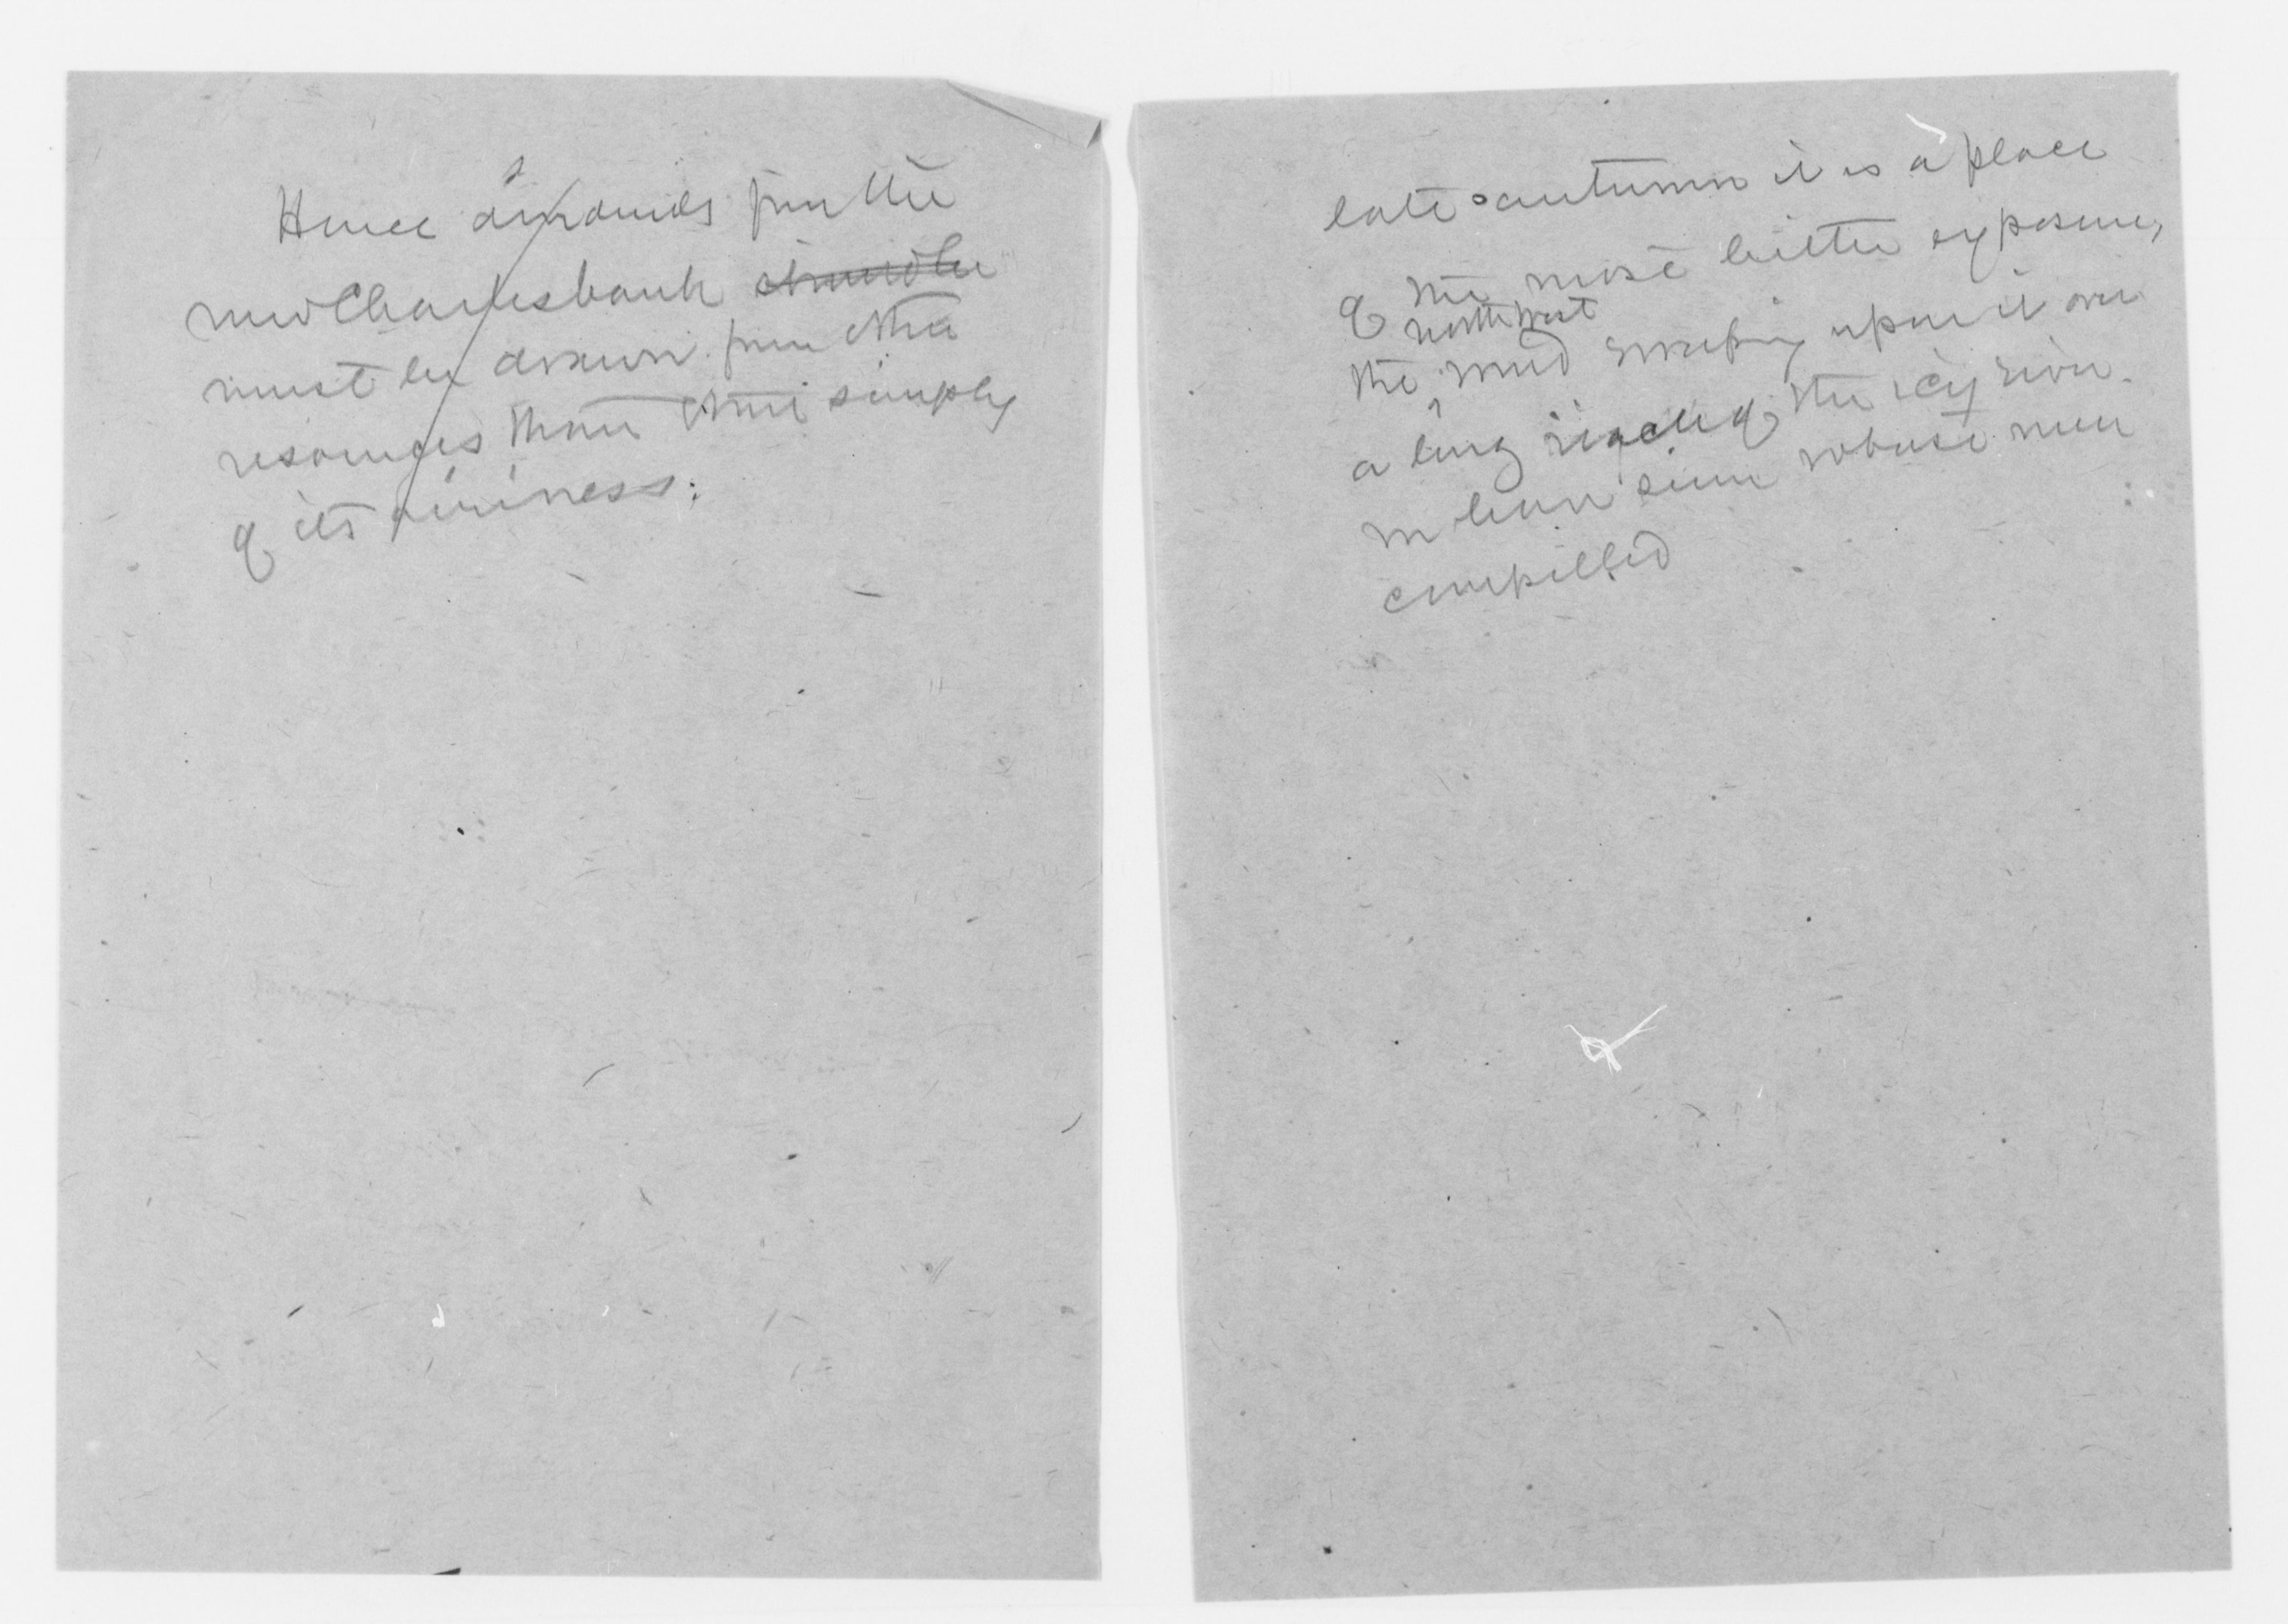 Hence demands from the
new Charlesbank should be
must be drawn from other
resources than those simply
of its airiness.
late autumn it is a place
of the most bitter exposure,
northwest
the wind sweeping upon it over
a long reach of the icy river.
We have seen robust men
compelled